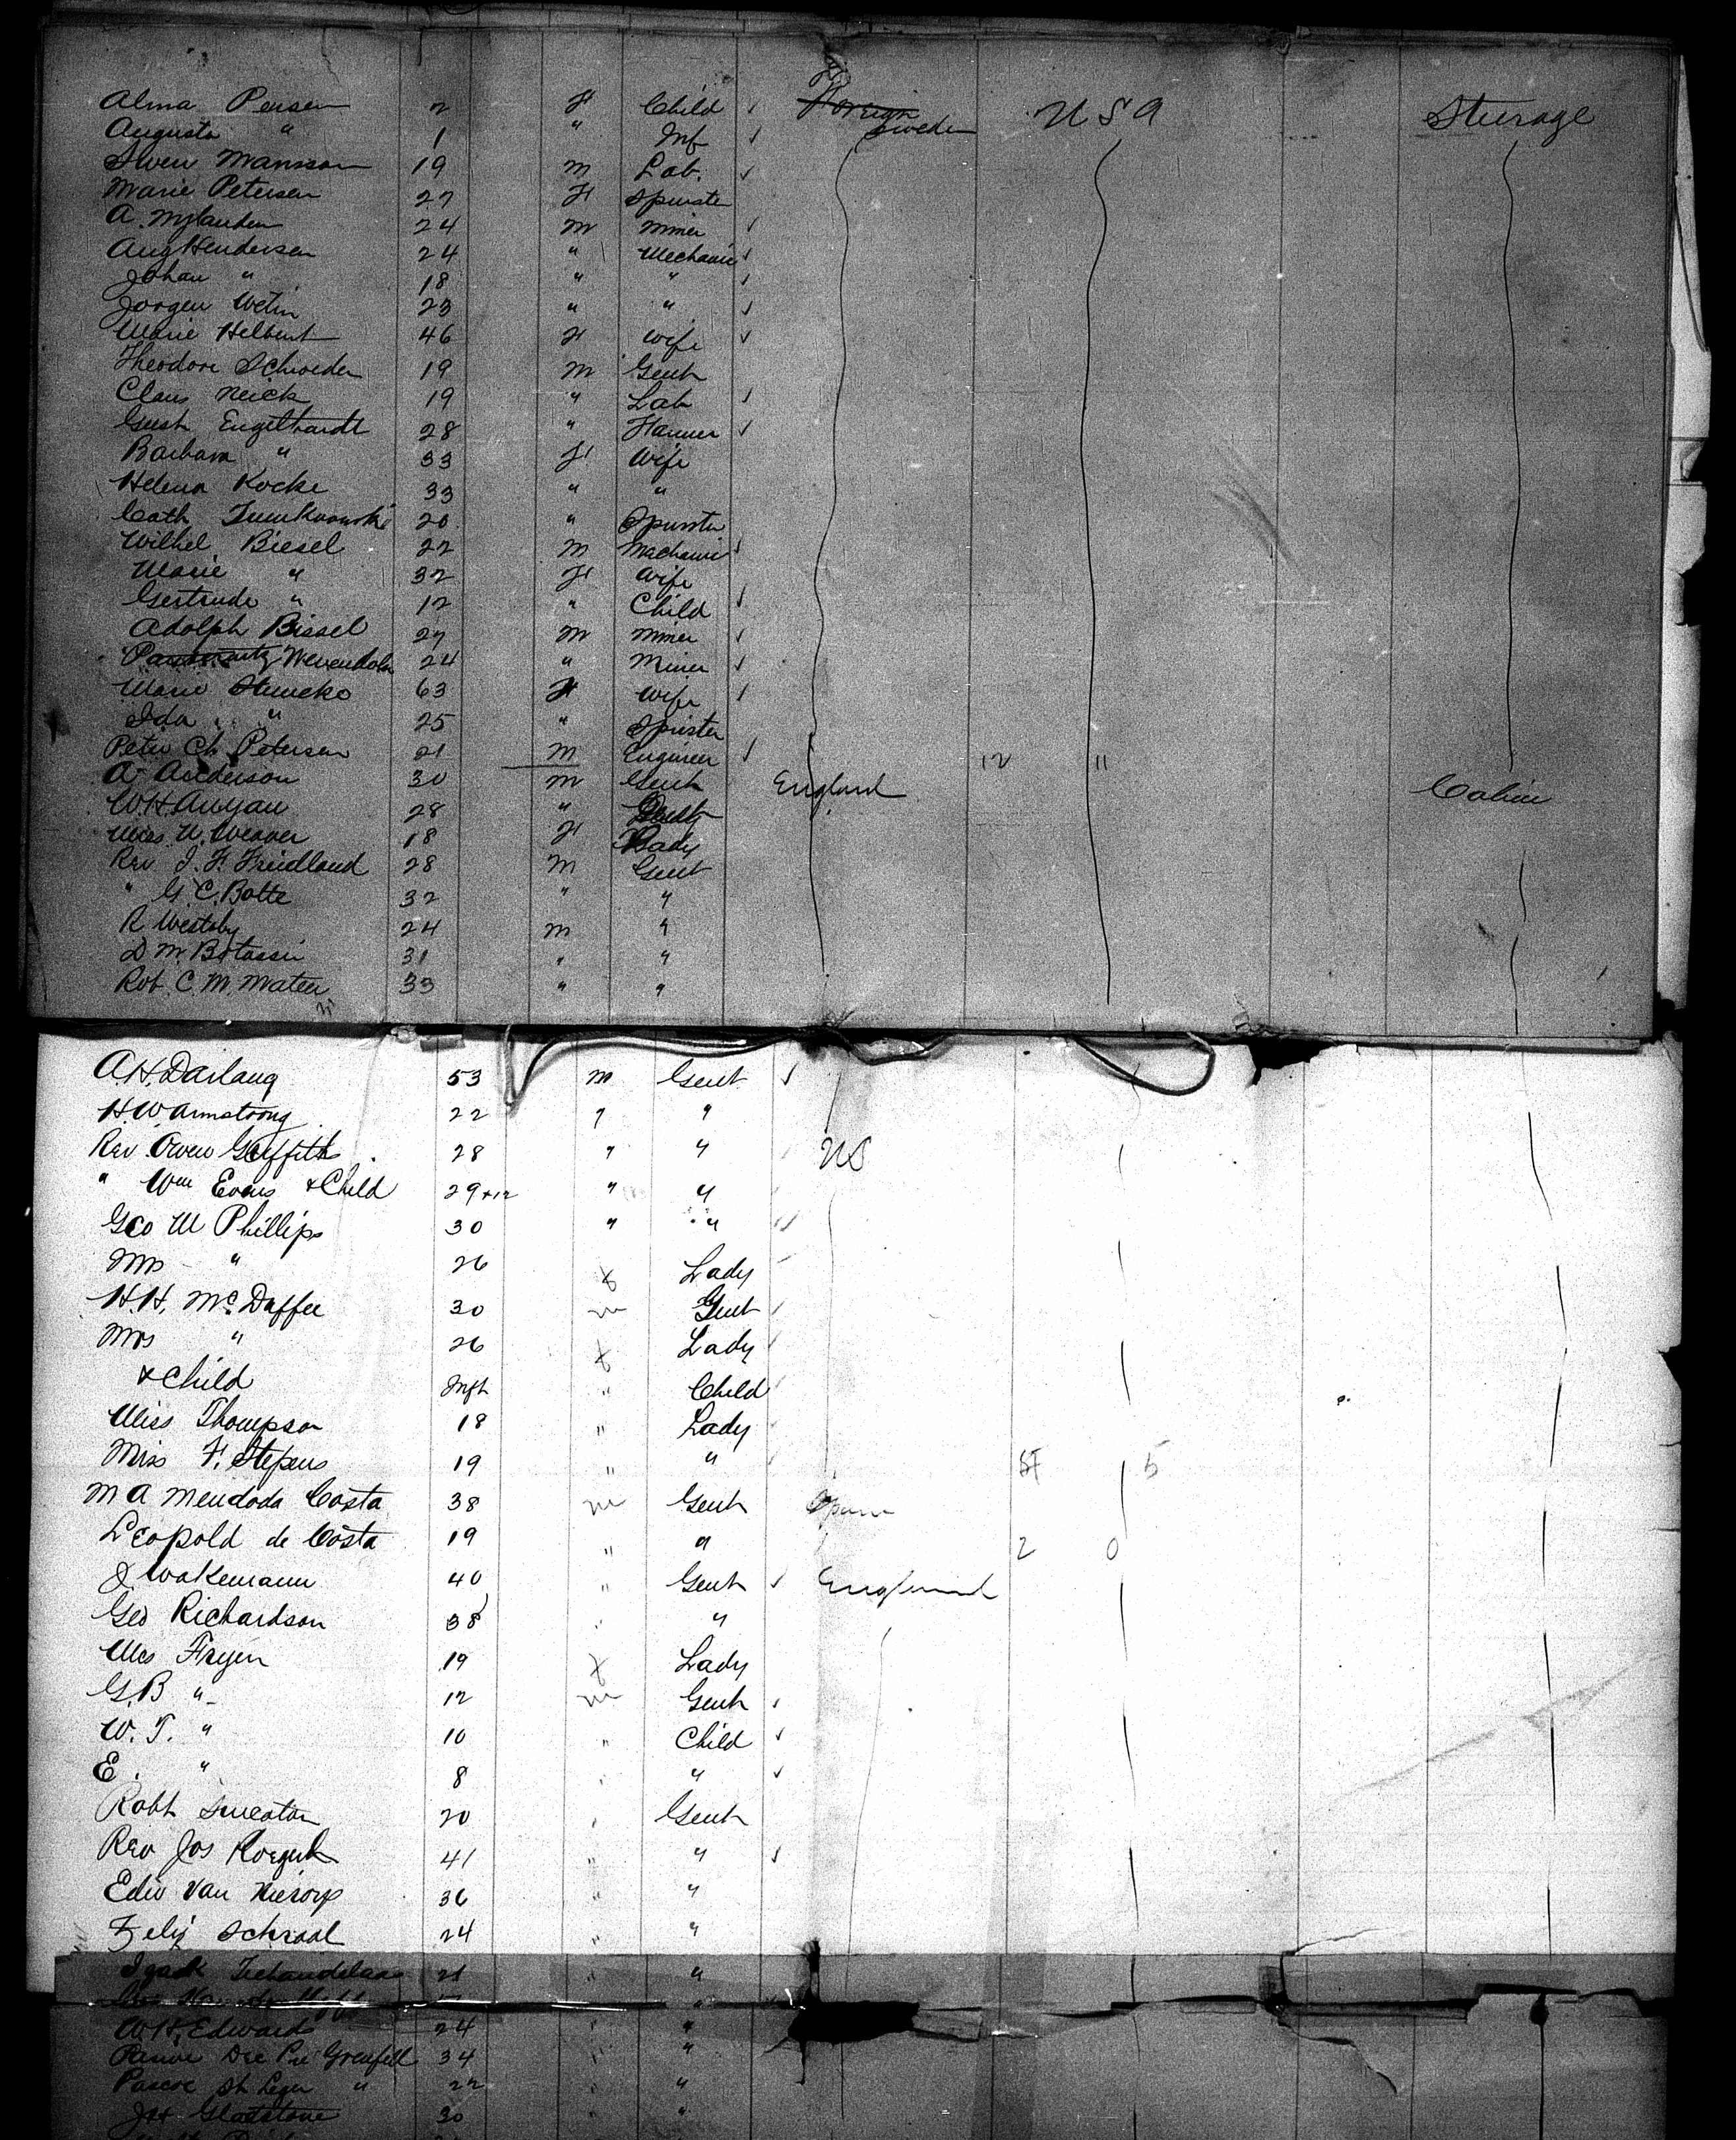 Alma Persen 2 F Child ✓ Foreign Sweden U S A Steerage
Augusta " 1 " Inf ✓
Swen Mansson 19 M Lab. ✓
Marie Petersen 27 F Spinster
A. 24 M Miner ✓
Aug Hendersen 24 " Mechanic ✓
Johan " 18 " " ✓
Jorgen Wetin 23 " " ✓
Marie Helbert 46 F Wife ✓
Theodore Schroeder 19 M Gent
Claus Neick 19 " Lab ✓
Gust Engelhardt 28 " Farmer ✓
Barbara " 33 F Wife
Helena Kocke 33 " "
Cath 20 " Spinster
Wilhel. Biesel 22 M Mechanic ✓
Marie " 32 F Wife
Gertrude " 12 " Child ✓
Adolph Bissel 27 M Miner ✓
24 " Miner ✓
Marie 63 F Wife ✓
Ida " 25 " Spinster
Peter Ch. Petersen 21 M Engineer ✓ 12 11
A Anderson 30 M Gent England Cabin
W.H. 28 " Gent
Miss W. Weaver 18 F Lady
Rev J. F. Friedland 28 M Gent
" G. C. Botte 32 " "
R Westby 24 M "
D M. Botassi 31 " "
Rob. C. M. Mateer 33 " "
A.H. Darlang 53 M Gent ✓
H.W Armstrong 22 " "
Rev Owen Griffiths 28 " " US
" Wm Evans & Child 29+12 " "
Geo W Phillips 30 " "
Mrs " 26 f Lady
H.H. McDuffee 30 m Gent
Mrs " 26 f Lady
& Child Inft " Child
Miss Thompson 18 " Lady
Miss F. Stepens 19 " " 5
M A Mendoda Costa 38 m Gent Spain
Leopold de Costa 19 " " 2 0
J Wakemann 40 " Gent ✓ England
Geo Richardson 38 " "
Mrs Fryer 19 f Lady
G.B " 12 m Gent ✓
W. T. " 10 " Child ✓
E. " 8 " " ✓
Robt Smeaton 20 " Gent
Rev Jos 41 " " ✓
Edw Van 36 " "
Schraal 24 " "
21 " "
W H. Edward 24 " "
Grenfell 34 " "
Pascoe St Leger " 22 " "
Jas Gladstone 30 " "